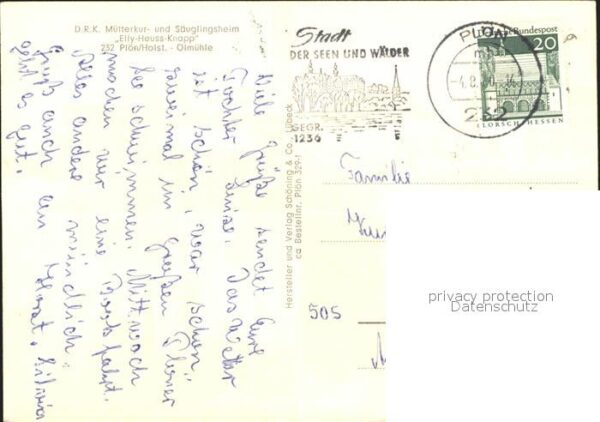 D.R.K. Mütterkur- und Säuglingsheim
„Elly-Heuss-Knapp"
232 Plön/Holst. - Ölmühle
Viele Grüße sendet Eure
Tochter Luise. Das Wetter
ist schön, war schon
zweimal im großen Plöner
See schwimmen. Mittwoch
machen wir eine Bootsfahrt.
Alles andere mündlich.
Gruß auch an Horst,
geht es gut.
Hersteller und Verlag Schöning & Co., Lübeck
Bestellnr. Plön 329
Stadt
DER SEEN UND WÄLDER
GEGR.
1236
PLÖN
232
Deutsche Bundespost
20
LORSCH/HESSEN
Familie
505
privacy protection
Datenschutz